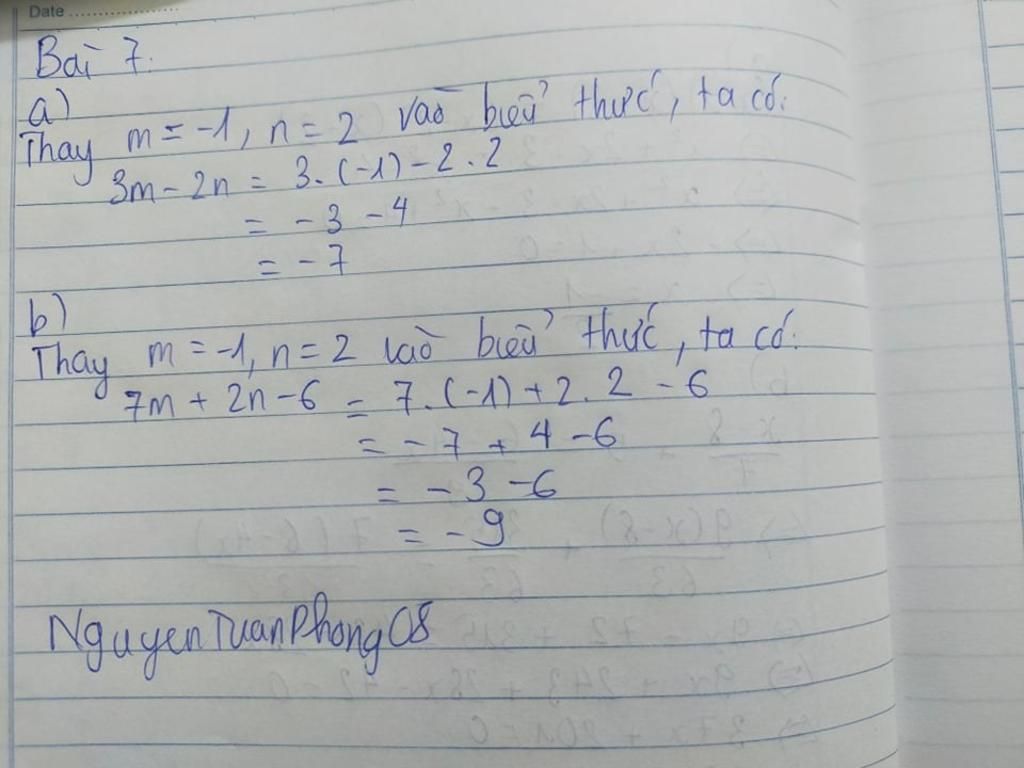 Date
Bài 7.
a)
Thay m = -1, n = 2 vào biểu thức, ta có:
3m - 2n = 3. (-1) - 2 . 2
= - 3 - 4
= - 7
b)
Thay m = -1, n = 2 vào biểu thức, ta có:
7m + 2n - 6 = 7. (-1) + 2. 2 - 6
= - 7 + 4 - 6
= - 3 - 6
= - 9
NguyenTuanPhong08